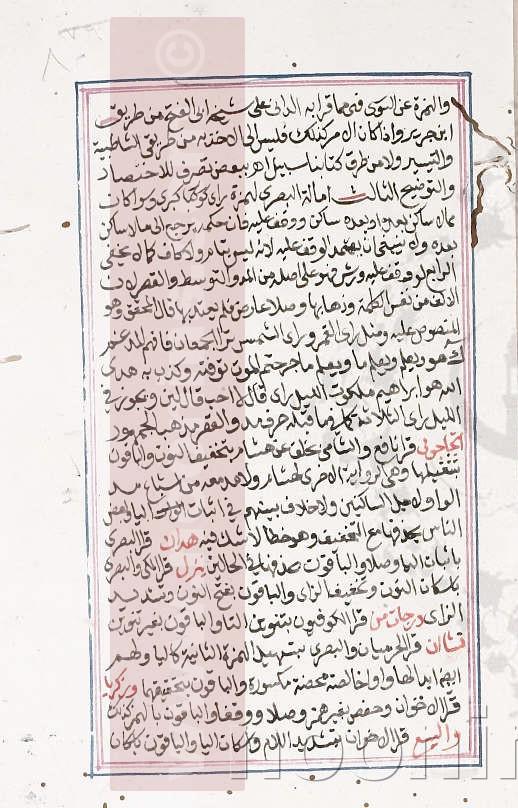 والهمزة عن السوسى فى مما قرا به الدانى على شيخه ابى الفتح من طريق
ابن جرير واذا كان الامر كذلك فليس الى الاخذ به من طريقى الشاطبية
والتيسير ولا من طرق كتابنا سبيل اهر ببعض تصرف للاختصار
والتوضيح الثالث امالة البصرى لهمزة راى كوكبا كبرى وبراكات
بعده ساكن ووقف عليه فان حكمه يرجع الى ما لا ساكن
بعده ولا ينبغى ان يعتمد الوقف عليه لانه ليس بتام ولا كاف كما لا يخفى
الرابع لو وقف عليه ورش فهو على اصله من المد والتوسط والقصر لان
الالف من نفس الكلمة وذهابها وصلا عارض فلم يعتد بها قال المحقق وهو
المنصوص عليه ومثل راى القمر وراى الشمس تراا الجمعان فانهم المدغم
ك هو ويعلم ويعلم ما ويعلم ما جرحتم الموت توفته وكذب به هدى
الله هو ابراهيم ملكوت الليل راى قال لا احب قال لئن ويجوز فى
الليل راى الثلاثة كل ما قبله حرف مد والقصر مذهب الجمهور
اتحاجونى قرا نافع والشامى بخلف عن هشام بتخفيف النون والباقون
بتثقيلها وهى الرواية الاخرى لهشام ولا بد معه من اشباع مد
الواو لاجل الساكنين ولا خلاف بينهم فى اثبات اليا وبعض
الناس يحذفها مع التخفيف وهو خطا لا شك فيه هدان قرا البصرى
باثبات اليا وصلا والباقون بحذفها فى الحالين ينزل قرا المكى والبصرى
باسكان النون وتخفيف الزاى والباقون بفتح النون وتشديد
الزاى درجات من قرا الكوفيون بتنوين التا والباقون بغير تنوين
نشاان قرا الحرميان والبصرى بتسهيل الهمزة الثانية كاليا ولهم
ايضا ابدالها واوا خالصة محضة مكسورة والباقون بتحقيقها وزكريا
قرا الاخوان وحفص بغير همز وصلا ووقفا والباقون بالهمز
واليسع قرا الاخوان بتشديد اللام واسكان اليا والباقون باسكان